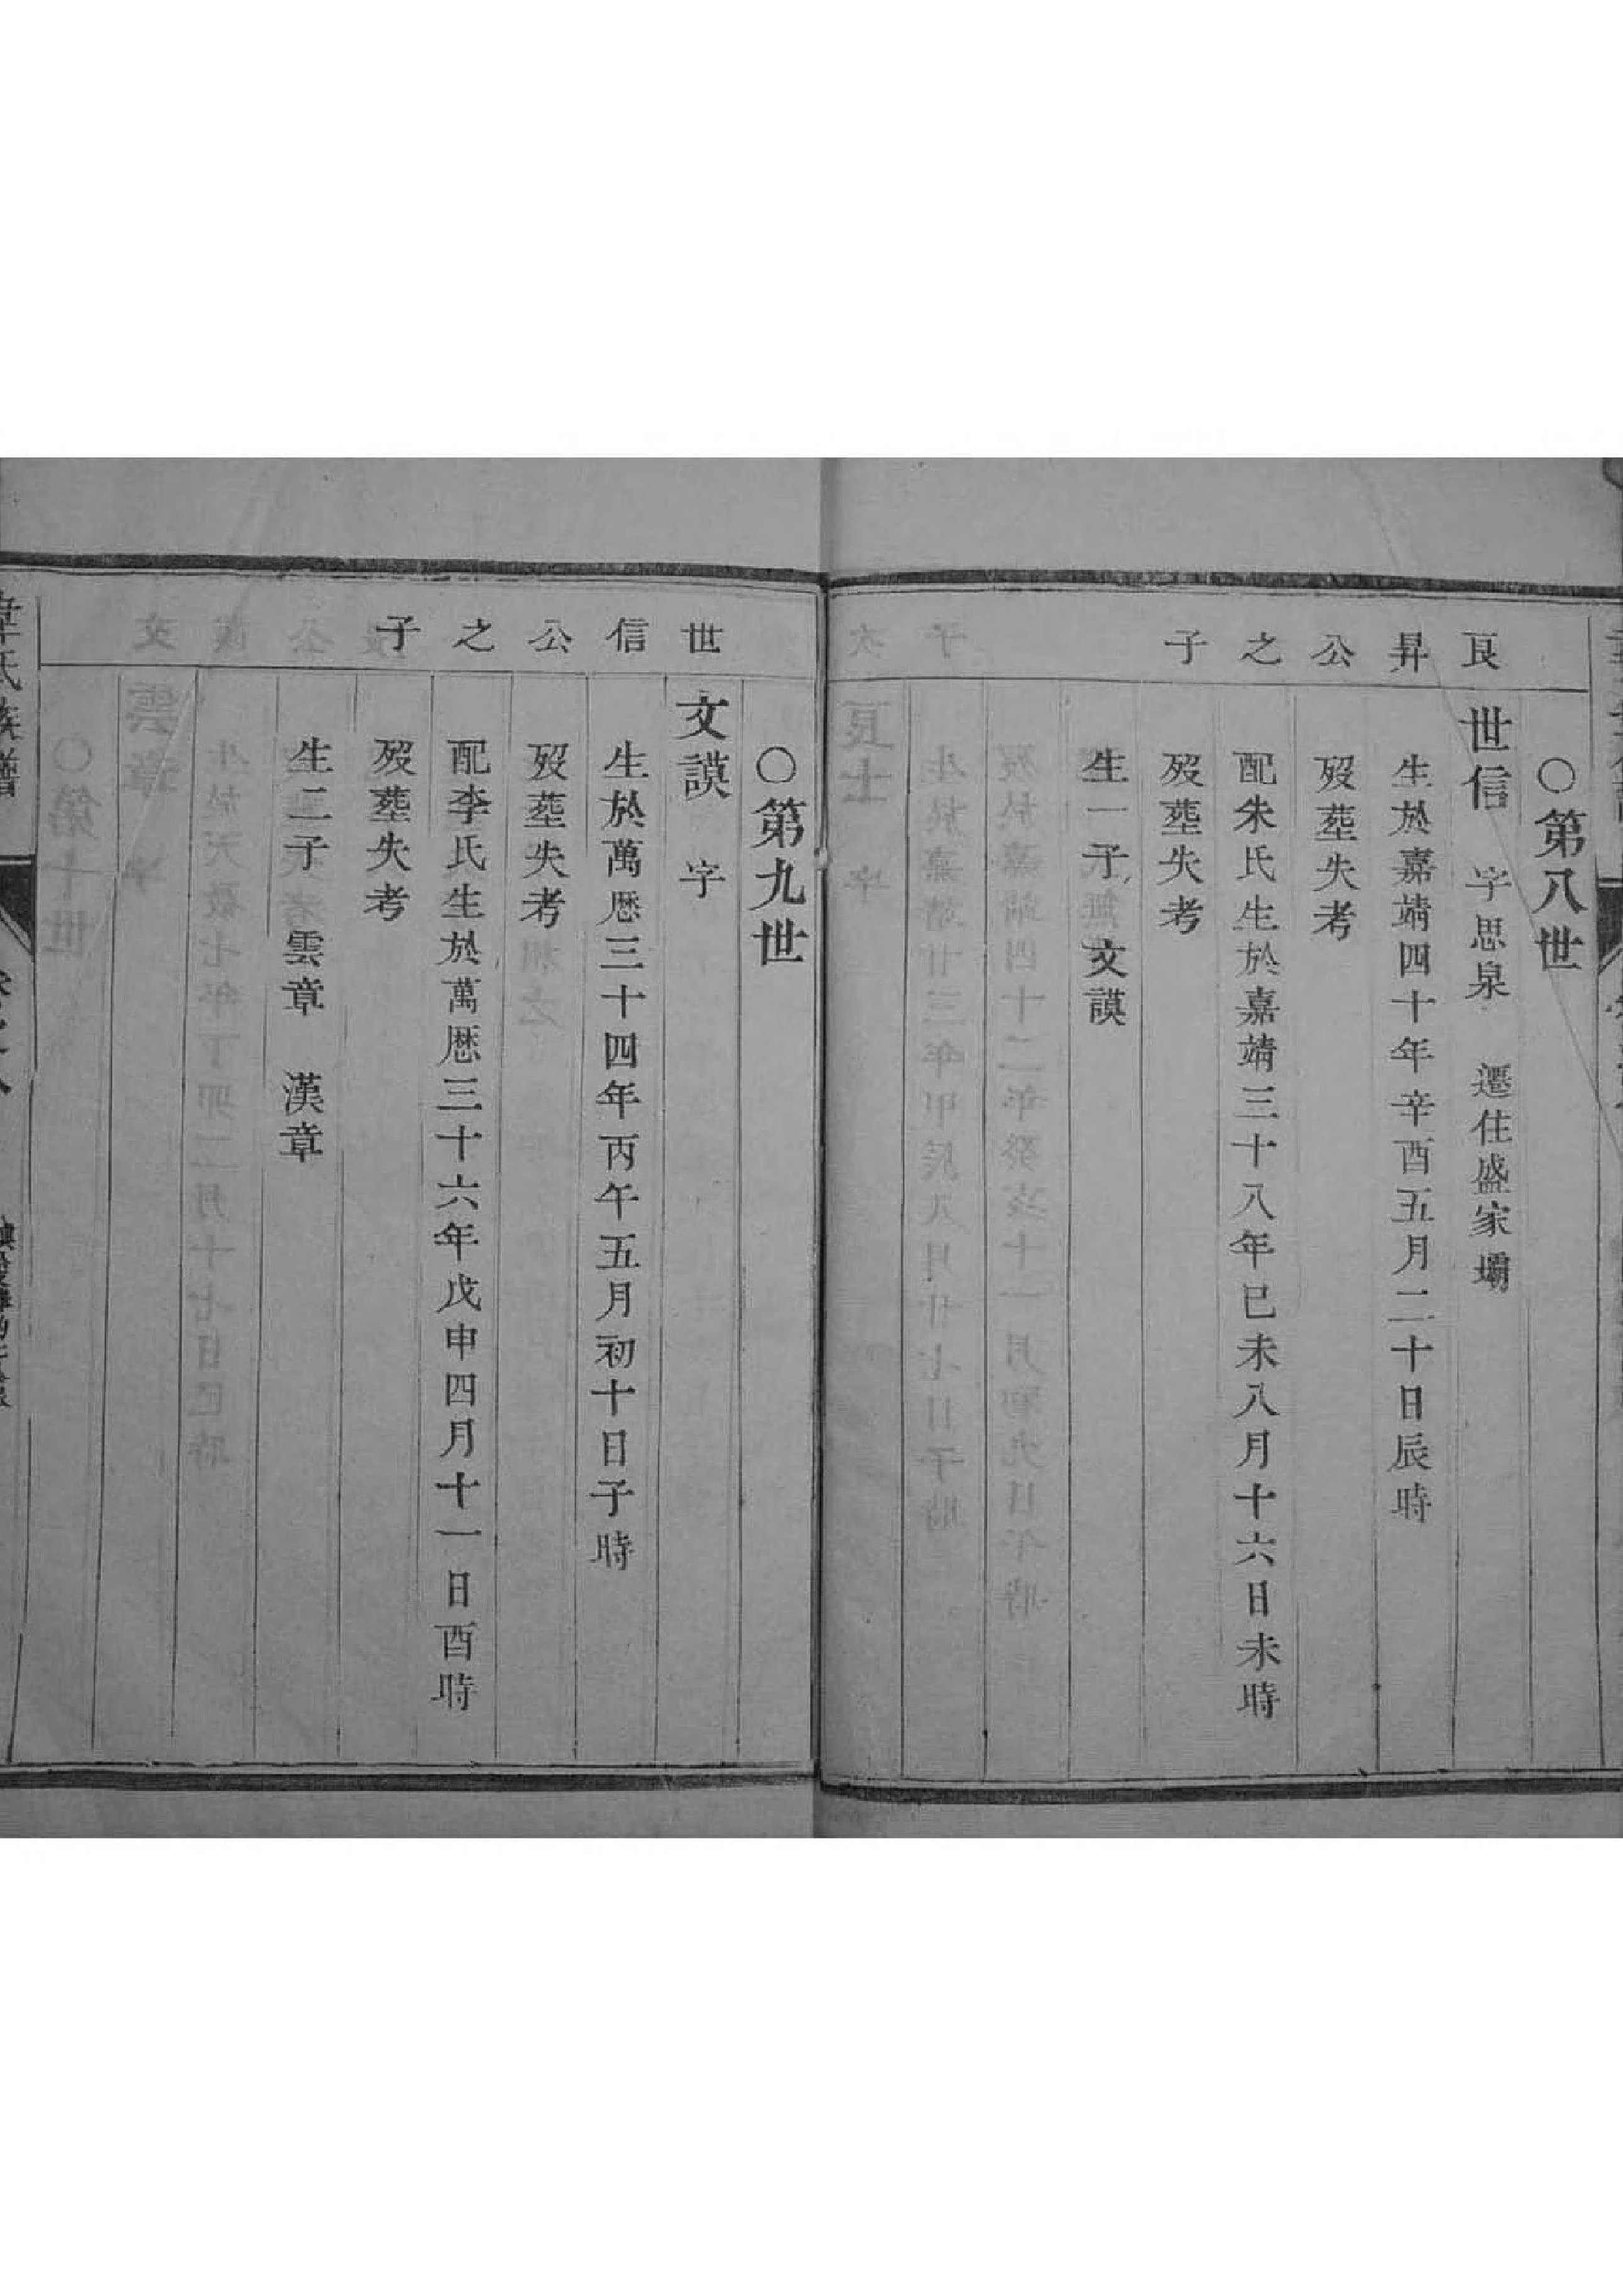 ○第八世
艮昇公之子
世信　字思泉　遷住盛家壩
生於嘉靖四十年辛酉五月二十日辰時
歿葬失考
配朱氏生於嘉靖三十八年已未八月十六日未時
歿葬失考
生一子　文謨
○第九世
世信公之子
文謨　字
生於萬厯三十四年丙午五月初十日子時
歿葬失考
配李氏生於萬厯三十六年戊申四月十一日酉時
歿葬失考
生二子　雲章　漢章
氏族譜